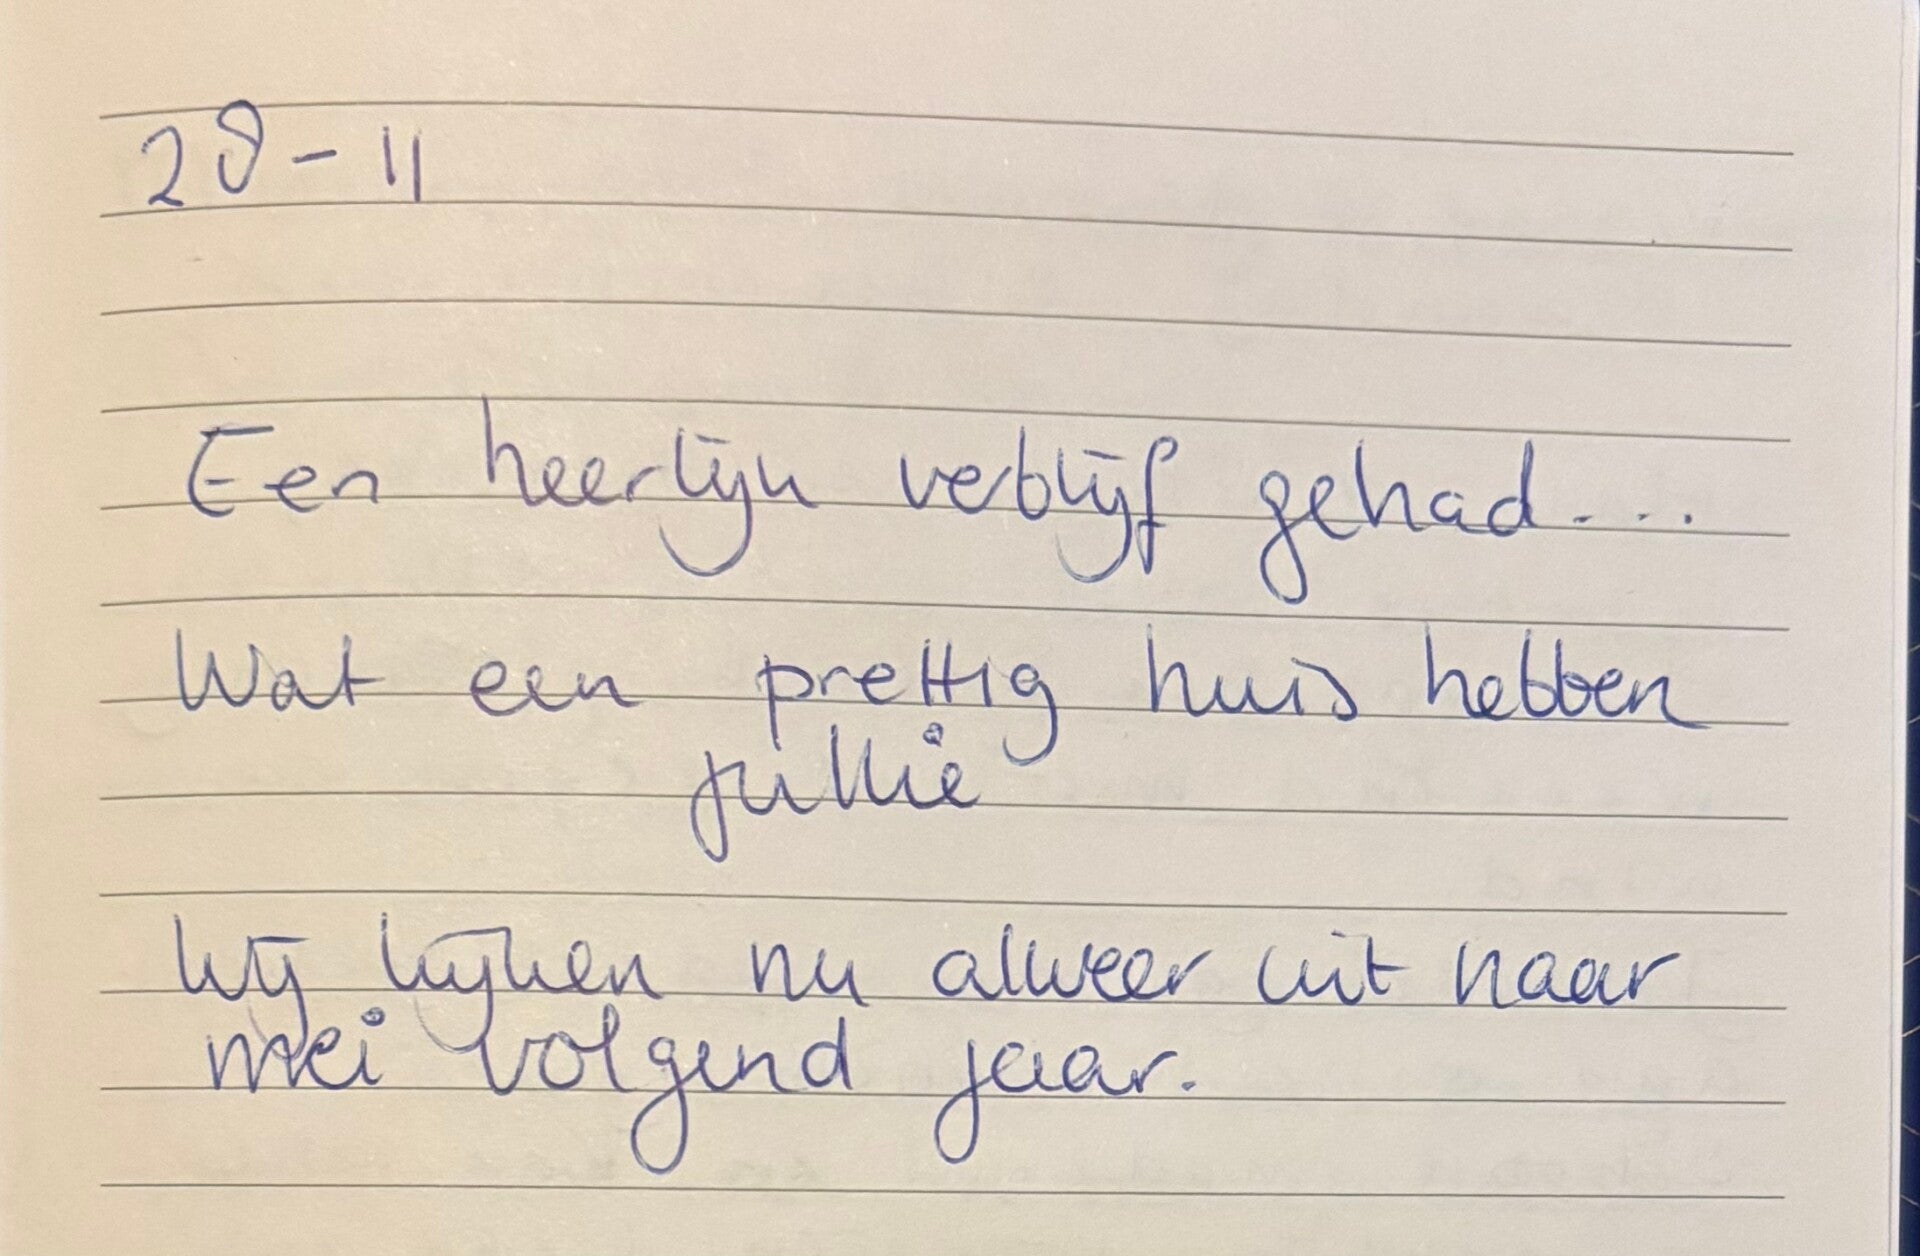 28 - 11
Een heerlijk verblijf gehad...
Wat een prettig huis hebben
jullie
Wij kijken nu alweer uit naar
mei volgend jaar.